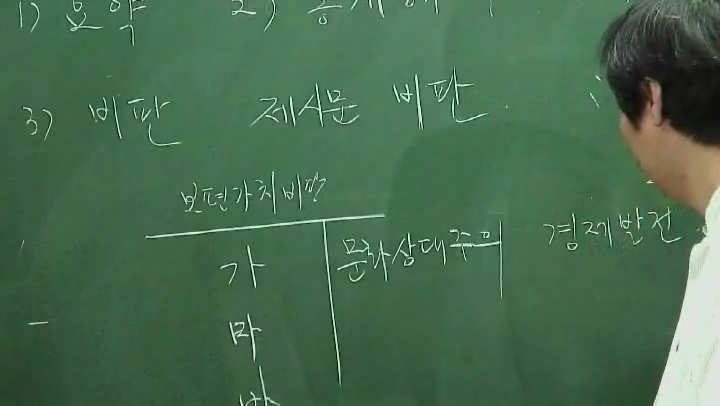 1) 요약 2)
3) 비판 제시문 비판.
보편가치비판
가 문화상대주의 경제발전
마
바